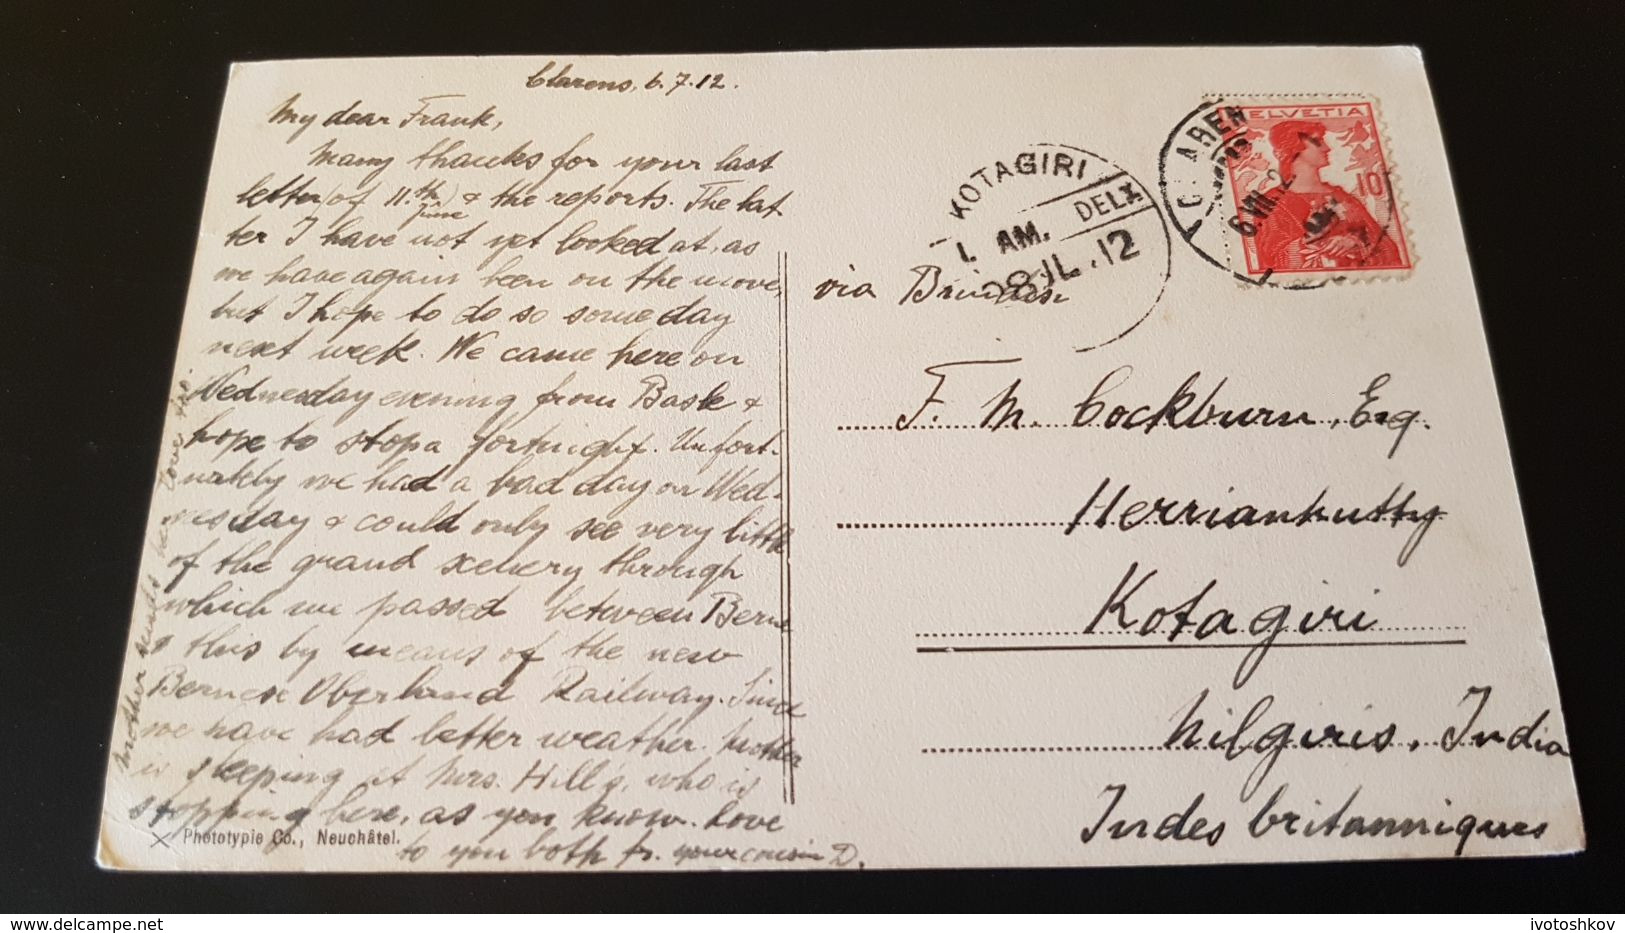 Clarens, 6.7.12.
My dear Frank,
Many thanks for your last
letter (of 11.th june) & the reports. The lat
ter I have not yet looked at, as
we have again been on the move,
but I hope to do so some day
next week. We came here on
Wednesday evening from Basle &
hope to stop a fortnight. Unfort-
nately we had a bad day on Wed-
nesday & could only see very little
of the grand scenery through
which we passed between Berne
& this by means of the new
Bernese Oberland Railway. Since
we have had better weather. Mother
is sleeping at Mrs. Hill's, who is
stopping here, as you know. Love
to you both fr. your cousin D.
Mother sends her love too
Phototypie Co., Neuchâtel.
via Brindisi
KOTAGIRI
1. AM. DELY
28 JL. 12
CLAREN
6.VII.12
HELVETIA
10
F. M. Cockburn, Esq.
Herriankutty
Kotagiri
Nilgiris, India
Indes britanniques
ivotoshkov